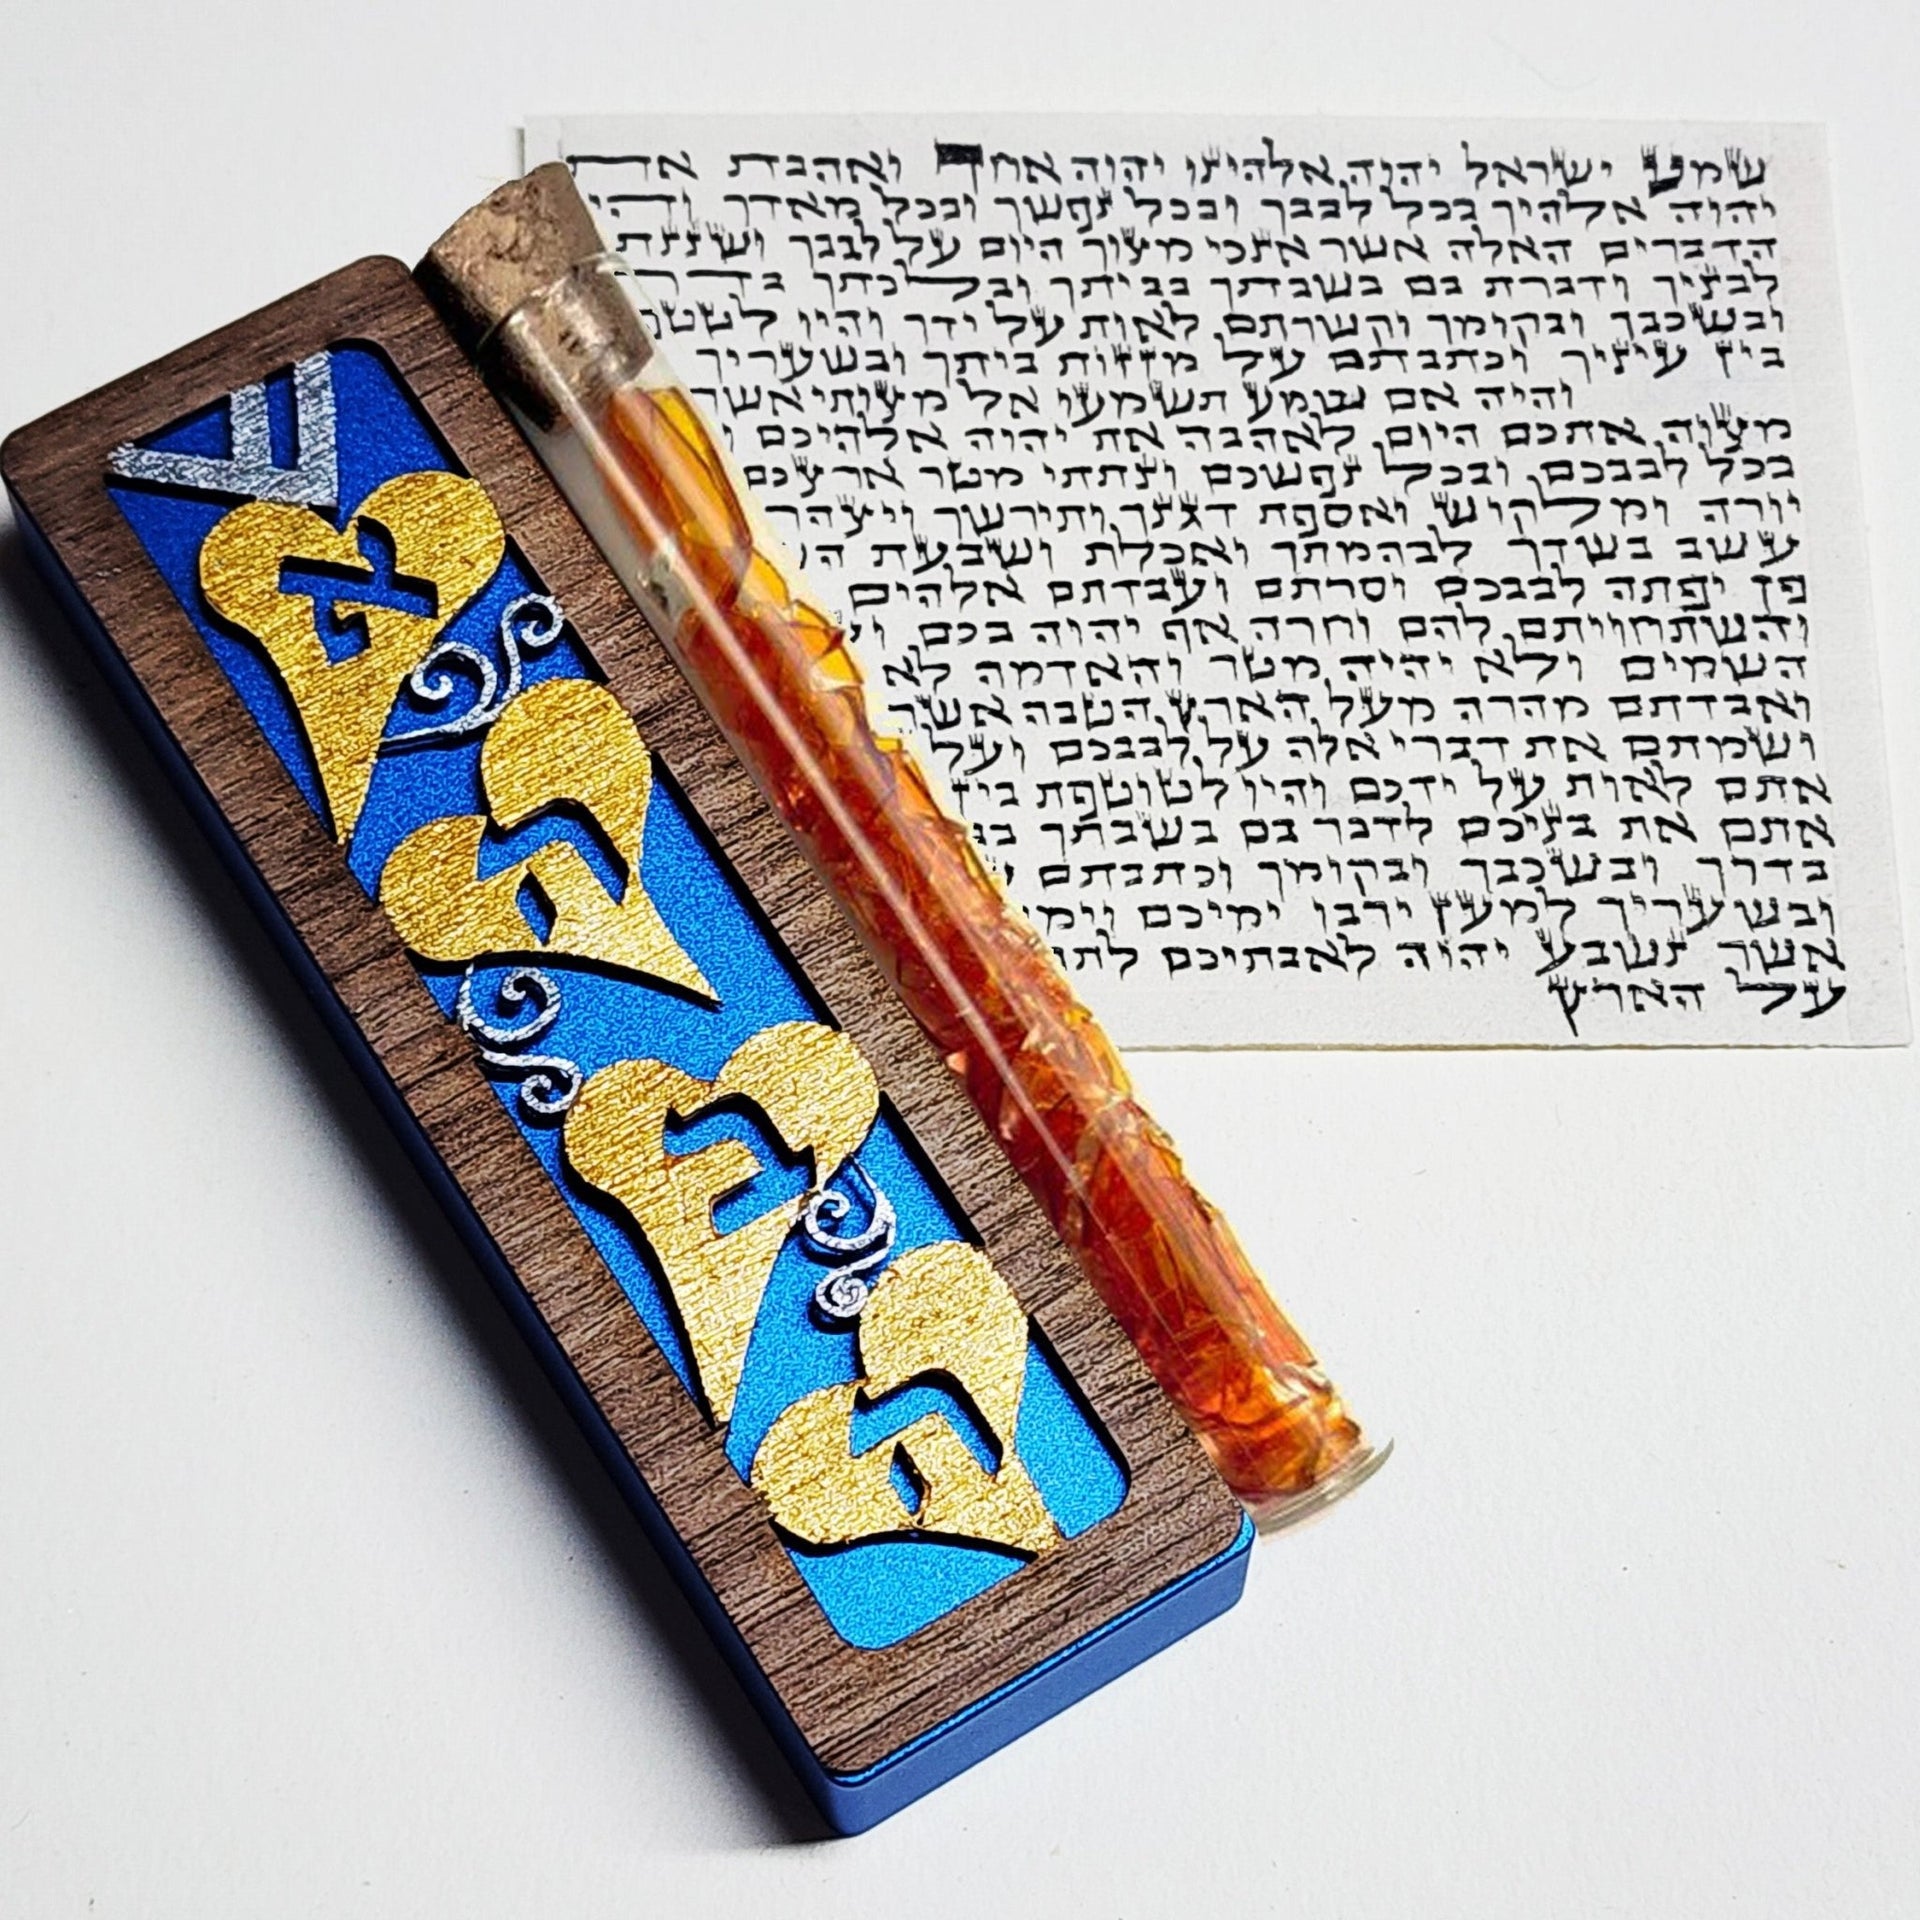 ש
א
ה
ב
ה
שמע ישראל יהוה אלהינו יהוה אחד ואהבת את
יהוה אלהיך בכל לבבך ובכל נפשך ובכל מאדך והי
הדברים האלה אשר אנכי מצוך היום על לבבך ושננת
לבניך ודברת בם בשבתך בביתך ובלכתך בדר
ובשכבך ובקומך וקשרתם לאות על ידך והיו לטטפ
בין עיניך וכתבתם על מזזות ביתך ובשעריך
והיה אם שמע תשמעו אל מצותי אשר
מצוה אתכם היום לאהבה את יהוה אלהיכם ו
בכל לבבכם ובכל נפשכם ונתתי מטר ארצכם
יורה ומלקוש ואספת דגנך ותירשך ויצהר
עשב בשדך לבהמתך ואכלת ושבעת ה
פן יפתה לבבכם וסרתם ועבדתם אלהים
והשתחויתם להם וחרה אף יהוה בכם
השמים ולא יהיה מטר והאדמה לא
ואבדתם מהרה מעל הארץ הטבה אשר
ושמתם את דברי אלה על לבבכם ועל
אתם לאות על ידכם והיו לטוטפת בין
אתם את בניכם לדבר בם בשבתך
בדרך ובשכבך ובקומך וכתבתם
ובשעריך למען ירבו ימיכם וימי
אשר נשבע יהוה לאבתיכם לתת
על הארץ